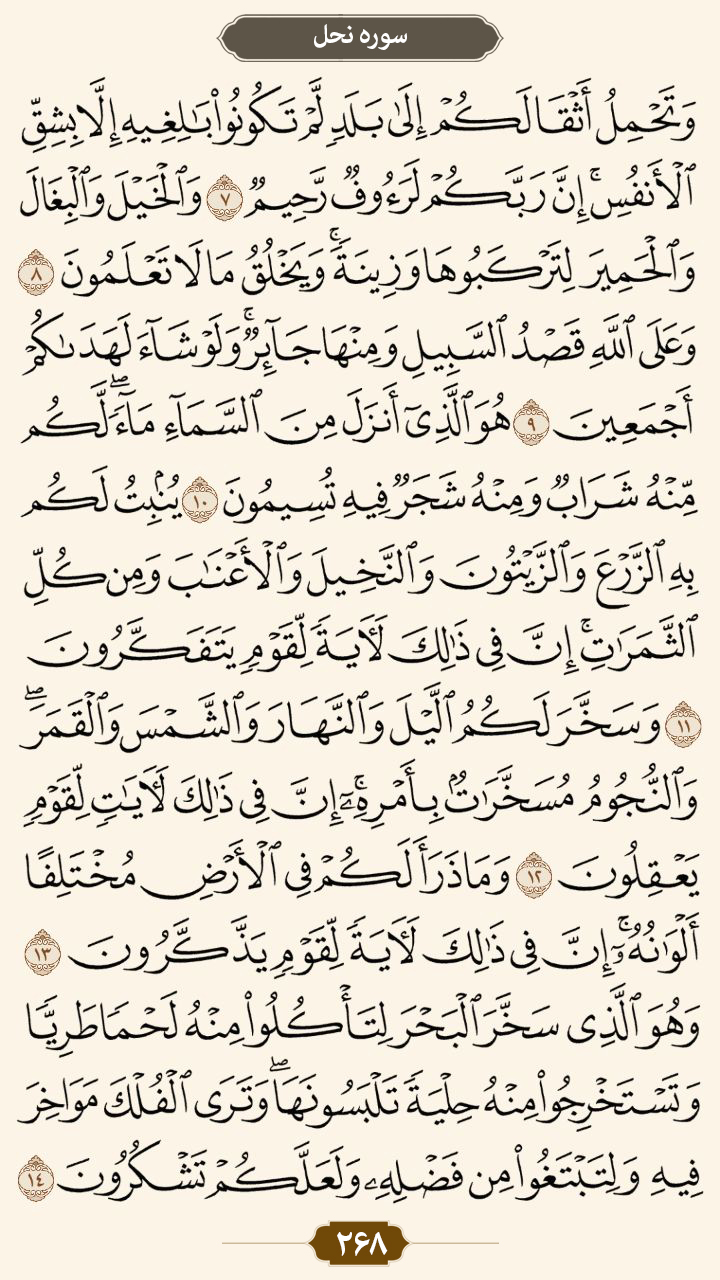 سوره نحل
وَتَحۡمِلُ أَثۡقَالَكُمۡ إِلَىٰ بَلَدٖ لَّمۡ تَكُونُواْ بَٰلِغِيهِ إِلَّا بِشِقِّ
ٱلۡأَنفُسِۚ إِنَّ رَبَّكُمۡ لَرَءُوفٞ رَّحِيمٞ ٧ وَٱلۡخَيۡلَ وَٱلۡبِغَالَ
وَٱلۡحَمِيرَ لِتَرۡكَبُوهَا وَزِينَةٗۚ وَيَخۡلُقُ مَا لَا تَعۡلَمُونَ ٨
وَعَلَى ٱللَّهِ قَصۡدُ ٱلسَّبِيلِ وَمِنۡهَا جَآئِرٞۚ وَلَوۡ شَآءَ لَهَدَىٰكُمۡ
أَجۡمَعِينَ ٩ هُوَ ٱلَّذِيٓ أَنزَلَ مِنَ ٱلسَّمَآءِ مَآءٗۖ لَّكُم
مِّنۡهُ شَرَابٞ وَمِنۡهُ شَجَرٞ فِيهِ تُسِيمُونَ ١٠ يُنۢبِتُ لَكُم
بِهِ ٱلزَّرۡعَ وَٱلزَّيۡتُونَ وَٱلنَّخِيلَ وَٱلۡأَعۡنَٰبَ وَمِن كُلِّ
ٱلثَّمَرَٰتِۚ إِنَّ فِي ذَٰلِكَ لَأٓيَةٗ لِّقَوۡمٖ يَتَفَكَّرُونَ
١١ وَسَخَّرَ لَكُمُ ٱلَّيۡلَ وَٱلنَّهَارَ وَٱلشَّمۡسَ وَٱلۡقَمَرَۖ
وَٱلنُّجُومُ مُسَخَّرَٰتُۢ بِأَمۡرِهِۦٓۚ إِنَّ فِي ذَٰلِكَ لَأٓيَٰتٖ لِّقَوۡمٖ
يَعۡقِلُونَ ١٢ وَمَا ذَرَأَ لَكُمۡ فِي ٱلۡأَرۡضِ مُخۡتَلِفًا
أَلۡوَٰنُهُۥٓۚ إِنَّ فِي ذَٰلِكَ لَأٓيَةٗ لِّقَوۡمٖ يَذَّكَّرُونَ ١٣
وَهُوَ ٱلَّذِي سَخَّرَ ٱلۡبَحۡرَ لِتَأۡكُلُواْ مِنۡهُ لَحۡمٗا طَرِيّٗا
وَتَسۡتَخۡرِجُواْ مِنۡهُ حِلۡيَةٗ تَلۡبَسُونَهَاۖ وَتَرَى ٱلۡفُلۡكَ مَوَاخِرَ
فِيهِ وَلِتَبۡتَغُواْ مِن فَضۡلِهِۦ وَلَعَلَّكُمۡ تَشۡكُرُونَ ١٤
۲۶۸